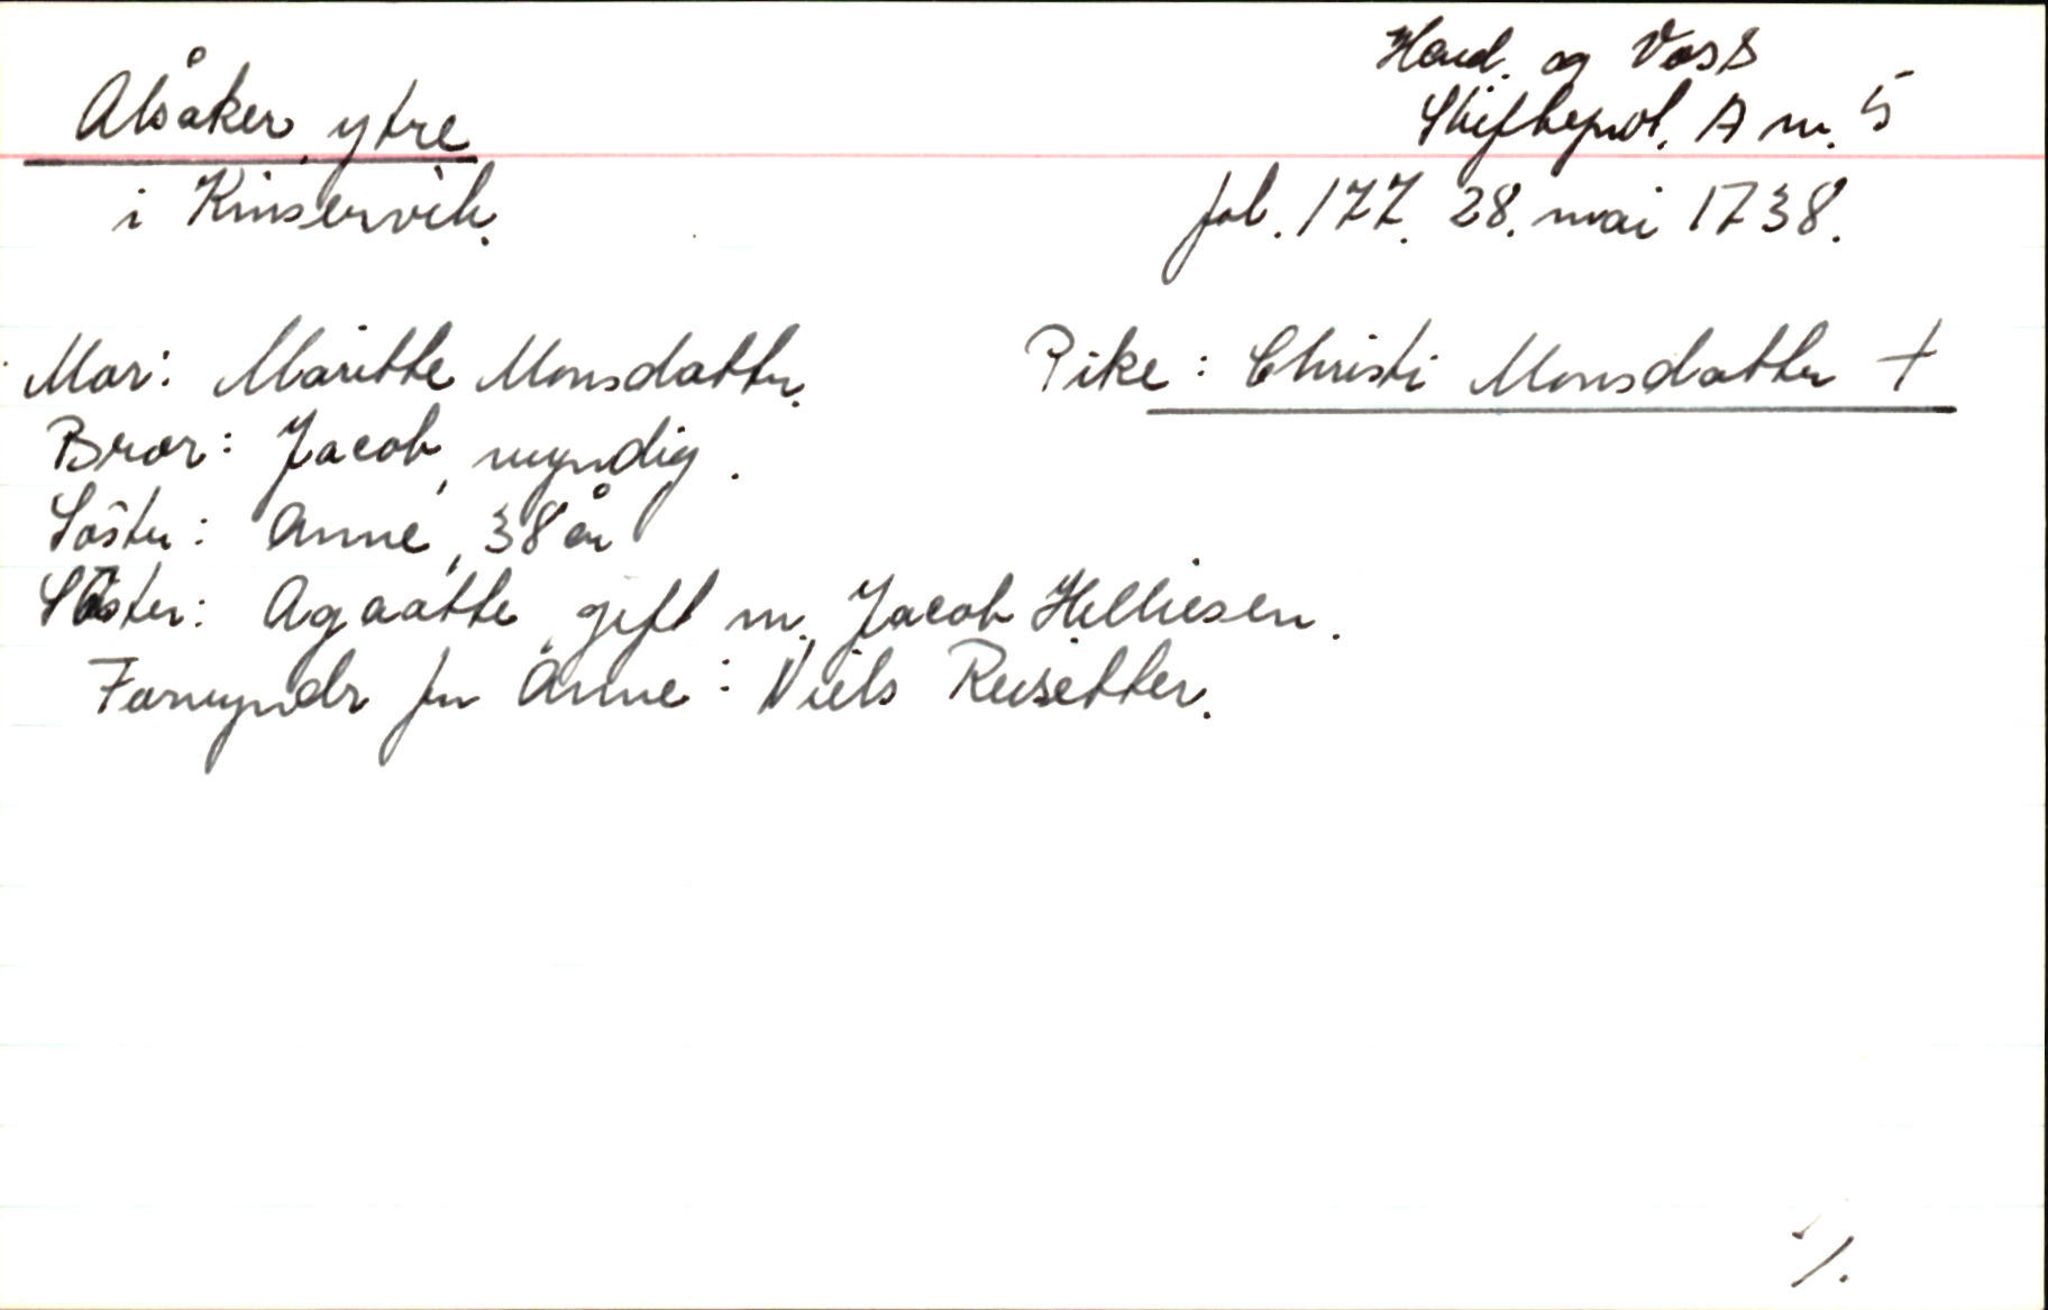 Alsåker ytre
i Kinservik.
Hard. og Voss
Skifteprot. A nr. 5
fol. 177. 28. mai 1738.
Mor: Maritte Monsdatter.
Pike: Christi Monsdatter +
Bror: Jacob, myndig.
Söster: Anne, 38 år
Söster: Agaatte, gift m. Jacob Helliesen.
Formyndr for Anne: Niels Reisetter.